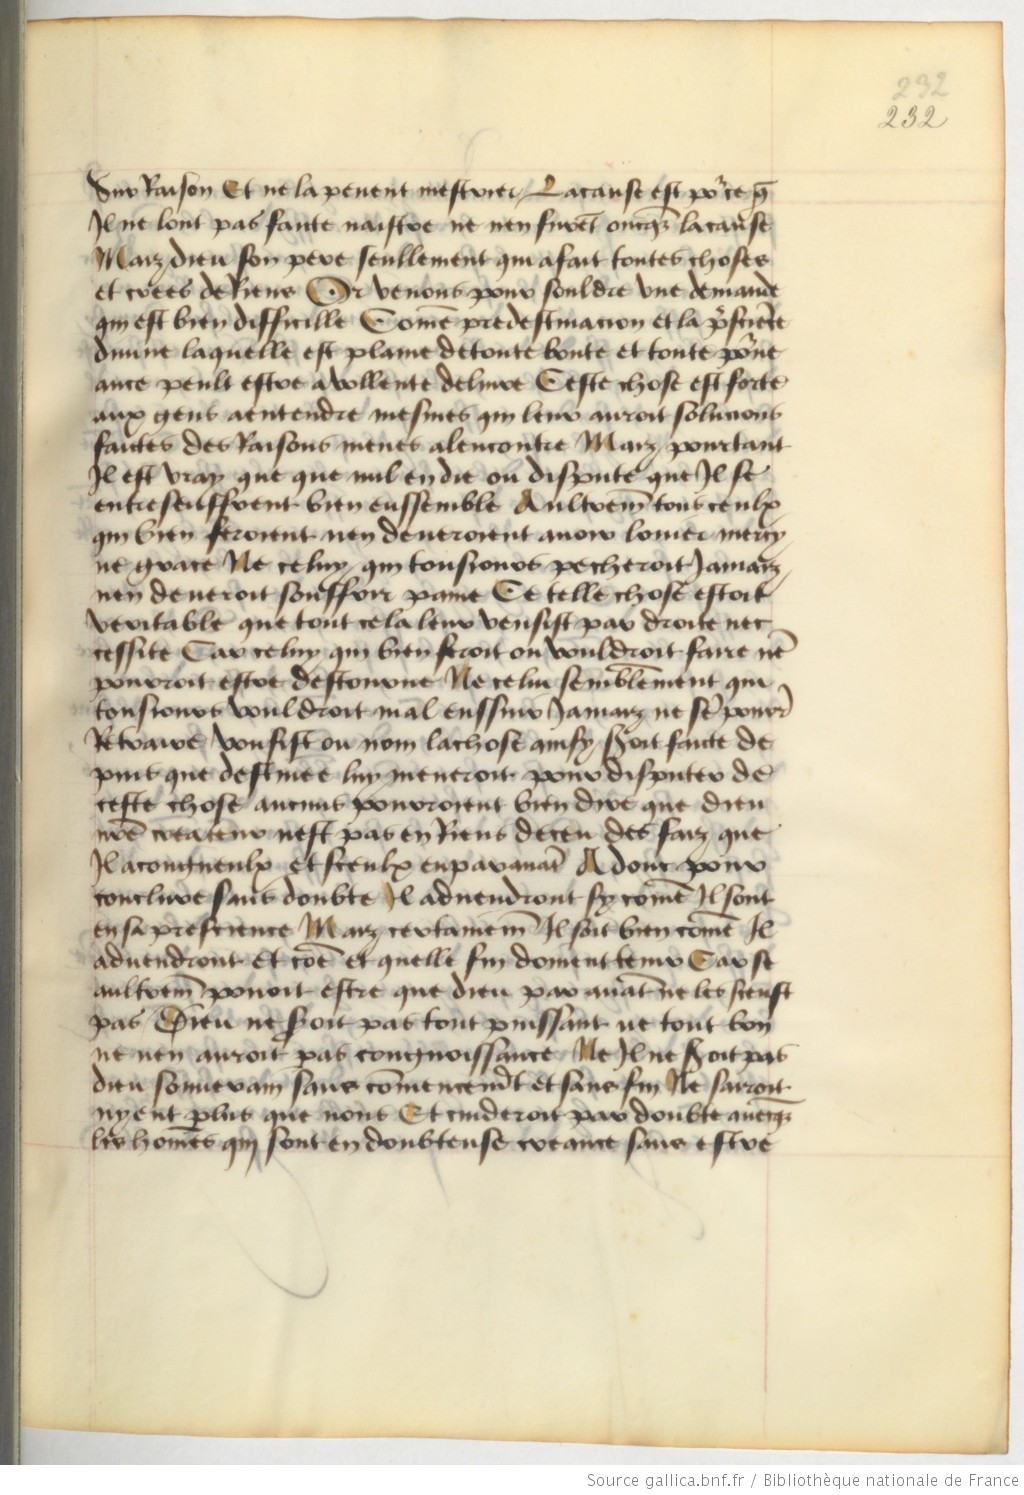 232
232
Sur Raison Et ne la pevent mestrier La cause est po'ce q̄
Il ne lont pas faute naistre ne nen furēt oncq̄z la cause
Maiz dieu son pere seullement qui a fait toutes choses
et crees de Riens Or venons pour souldre vne demande
qui est bien difficille Comē predestinacion et la p̄sciēce
diuine laquelle est plaine de toute bonte et toute po'ue
ance peult estre a vollente deliure Ceste chose est forte
aux gens a entendre mesmes qui leur auroit solucions
faictes des Raisons menes alencontre Maiz pourtant
Il est vray que que nul en die ou dispute que Il se
entreseuffrent bien enssemble Aultrem̄ tous ceulx
qui bien feroient nen deueroient auoir louier mercy
ne grace Ne celuy qui tousiours pecheroit Jamaiz
nen deueroit souffrir paine Ce telle chose estoit
veritable que tout cela leur vensist par droite nec
cessite Car celuy qui bien feroit ou vouldroit faire nē
pourroit estre destourne Ne celui semblēment qui
tousiours vouldroit mal enssiuir Jamaiz ne sē pourr̄
Retraire vousist ou nom la chose ainsy Soit faicte de
puis que destinee luy meneroit pour disputer de
ceste chose aucuns pourroient bien dire que dieu
nr̄e createur nest pas en Riens deceu des faiz que
Il a congneulx et sceulx en par auāt Adonc pour
conclure sans doubte Il aduendront sy comē Il sont
en sa prescience Maiz certainem̄ Il scit bien comē Il
aduendront Et coē et quelle fin doiuent tenir Car se
aultrem̄ pouoit estre que dieu par auāt ne les sceust
pas Dieu ne Soit pas tout puissant ne tout bon
ne nen auroit pas congnoissance Ne Il ne Soit pas
dieu souuerain sans cōmencem̄t et sans fin Ne sarroit
nyent plus que nous Et cuideroit par doubte auecq̄z
les homēs qui sont en doubteuse creance sans estre
Source gallica.bnf.fr / Bibliothèque nationale de France